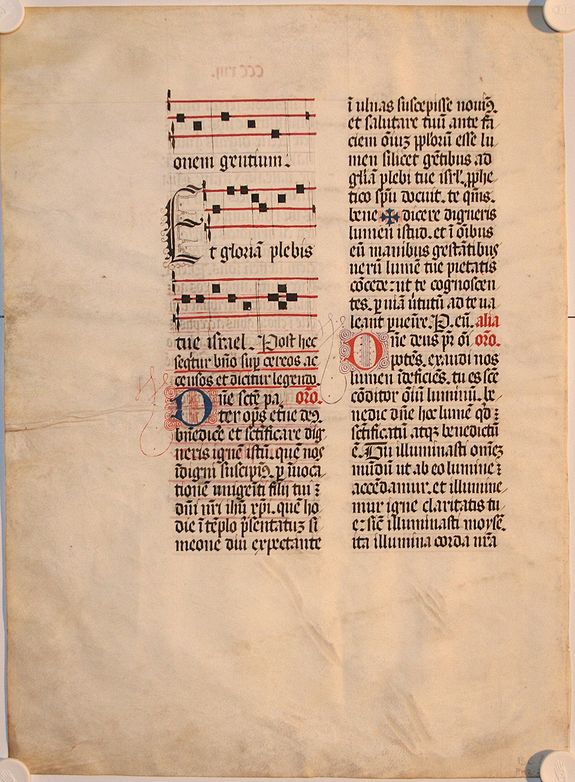 onem gentium.
Et gloriā plebis
tue israel. Post hec
seqtur bn̄o sup cereos ac
censos et dicitur legendo.
Dn̄e sctē pa oro.
ter op̄s etn̄e de9
bn̄edicē et sctificare dig
neris ignē istū. quē nos
īdigni suscipim9. p īuoca
tionē unigeīti filij tui ⁊
dn̄i nr̄i ihū xp̄i. quē ho
die ī tēplo p̄sentatuȝ si
meone diu expectante
ī ulnas suscepisse nouim9.
et salutare tuū ante fa
ciem ōiuȝ pplorū esse lu
men silicet gētibus ad
gl̄iā plebi tue isrl̄. pphe
tico sp̄u docuit. te qm̄s.
bene ✠ dicere digneris
lumen istud. et ī ōibus
eū manibus gestātibus
uerū lumē tue pietatis
cōcede: ut te cognoscen
tes. p uiā ūtutū ad te ua
leant puenīre. P. eū. alia
Dn̄e deus pr̄ oī oro.
potēs. exaudi nos
lumen īdeficiēs. tu es scē
cōditor ōiū luminū. be
nedic dn̄e hoc lumē qd̄ ⁊
sctificatū atqȝ benedictū
ē. Qui illuminasti omēȝ
mūdū ut ab eo lumine ⁊
accēdamur. et illumine
mur igne claritatis tu
e: sic̄ illuminasti moysē.
ita illumina corda nr̄a